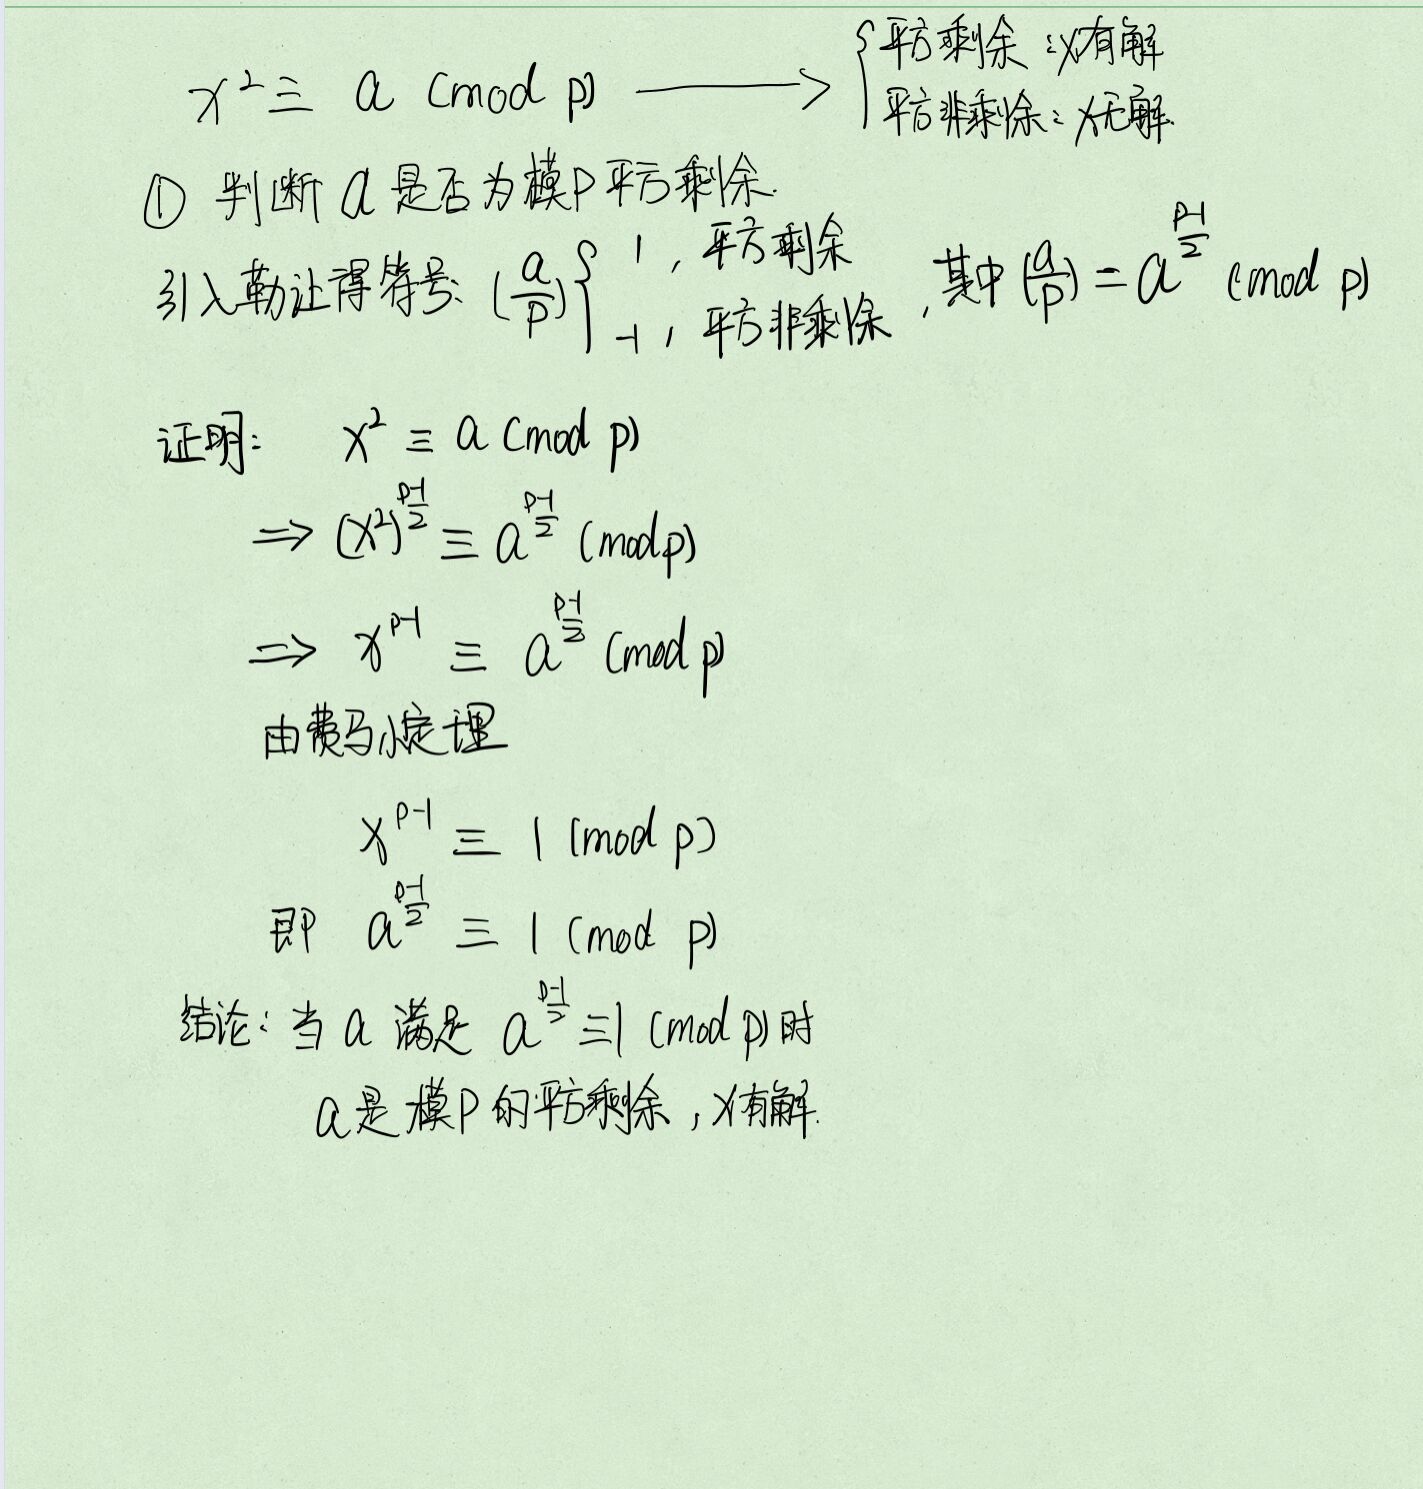 x² ≡ a (mod p) ⟶ { 平方剩余：x有解
平方非剩余：x无解.
① 判断 a 是否为模P平方剩余.
引入勒让得符号: (a/p) { 1，平方剩余
-1，平方非剩余，其中 (a/p) = a^((p-1)/2) (mod p)
证明： x² ≡ a (mod p)
⇒ (x²)^((p-1)/2) ≡ a^((p-1)/2) (mod p)
⇒ x^(p-1) ≡ a^((p-1)/2) (mod p)
由费马小定理
x^(p-1) ≡ 1 (mod p)
即 a^((p-1)/2) ≡ 1 (mod p)
结论：当 a 满足 a^((p-1)/2) ≡ 1 (mod p) 时
a是模P的平方剩余，x有解.